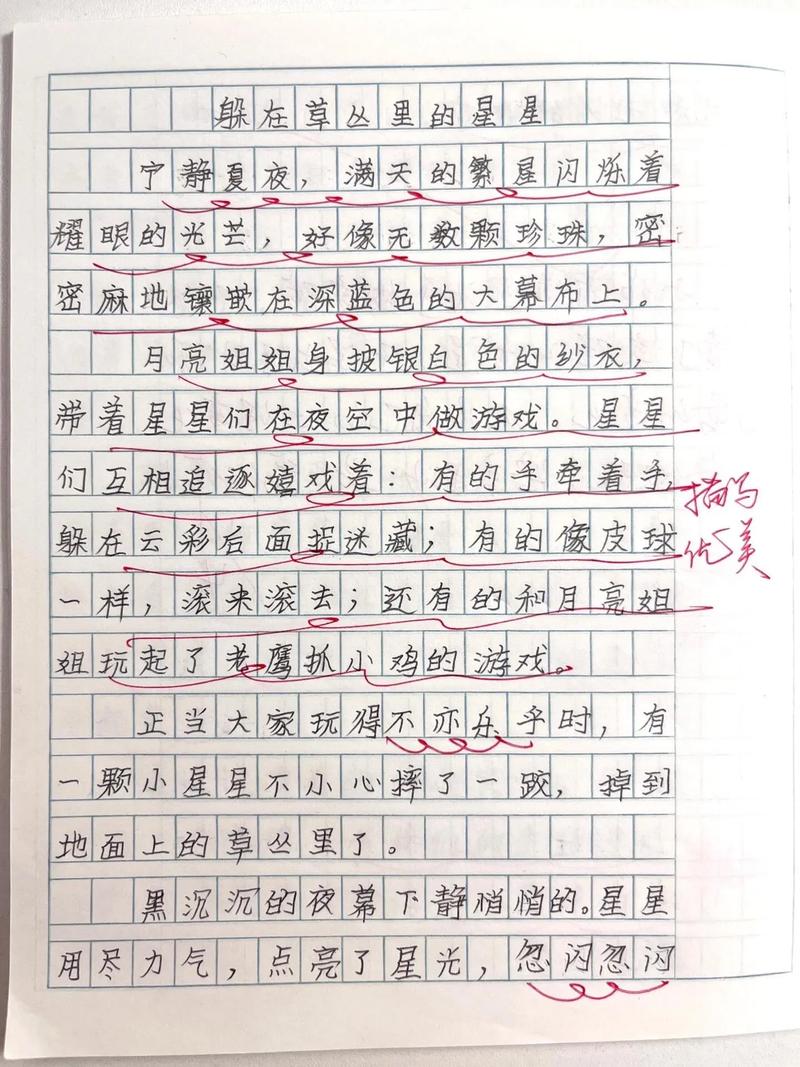 躲在草丛里的星星
宁静夏夜，满天的繁星闪烁着
耀眼的光芒，好像无数颗珍珠，密
密麻地镶嵌在深蓝色的大幕布上。
月亮姐姐身披银白色的纱衣，
带着星星们在夜空中做游戏。星星
们互相追逐嬉戏着：有的手牵着手，
躲在云彩后面捉迷藏；有的像皮球
一样，滚来滚去；还有的和月亮姐
姐玩起了老鹰抓小鸡的游戏。
描写
优美
正当大家玩得不亦乐乎时，有
一颗小星星不小心摔了一跤，掉到
地面上的草丛里了。
黑沉沉的夜幕下静悄悄的。星星
用尽力气，点亮了星光，忽闪忽闪